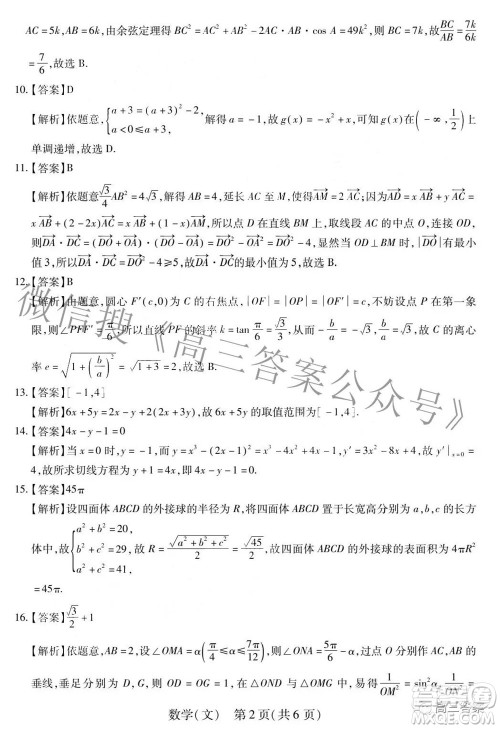 AC=5k,AB=6k,由余弦定理得 BC²=AC²+AB²-2AC·AB·cos A=49k²,则 BC=7k,故 BC/AB=7k/6k
=7/6,故选 B.
10.【答案】D
【解析】依题意,{a+3=(a+3)²-2, a<0≤a+3, 解得 a=-1,故 g(x)=-x²+x,可知 g(x)在(-∞,1/2)上
单调递增,故选 D.
11.【答案】B
【解析】依题意 √3/4 AB²=4√3,延长 AC 至 M,使得 AC=CM,因为 AD=xAB+(2-2x)AC,则 AD=
xAB+(2-2x)AC=xAB+(1-x)AM,所以点 D 在直线 BM 上,取线段 AC 的中点 O,连接 OD,
则 DA·DC=(DO+OA)·(DO-OA)=DO²-OA²=DO²-4,显然当 OD⊥BM 时,|DO|有最小
值 3,所以 DA·DC=DO²-4≥5,故 DA·DC 的最小值为 5,故选 B.
12.【答案】B
【解析】由题意,圆心 F'(c,0)为 C 的右焦点,|OF|=|OP|=|PF'|=c,不妨设点 P 在第一象
限,则∠PFF'=π/6,所以直线 PF 的斜率 k=tan π/6=√3/3,从而 -b/a=-√3,b/a=√3,故 C 的离心
率 e=√(1+(b/a)²)=√(1+3)=2,故选 B.
13.【答案】[-1,4]
【解析】6x+5y=2x-y+2(2x+3y),故 6x+5y 的取值范围为[-1,4].
14.【答案】4x-y-1=0
【解析】当 x=0 时,y=-1,故切点为(0,-1),y'=e^x(sin x+3x²-x³+cos x+6x-3x²+4),故 y'|x=0=
4,故所求切线方程为 y+1=4x,即 4x-y-1=0.
15.【答案】45π
【解析】设四面体 ABCD 的外接球的半径为 R,将四面体 ABCD 置于长宽高分别为 a,b,c 的长方
体中,故{a²+b²=20, b²+c²=29, a²+c²=41, 故 R=√(a²+b²+c²)/2=√45/2,故四面体 ABCD 的外接球的表面积 4πR²
=45π.
16.【答案】√3/2+1
【解析】依题意,AB=2,设∠OMA=α(π/4≤α≤7π/12),则∠ONA=5π/6-α,过点 O 作 AB,AC 的
垂线,垂足分别为 D,G,则 OD=OG=1,在△OND 与△OMG 中,故 1/OM²=sin²α,
数学(文) 第2页(共6页)
微信搜《高三答案公众号》
高三答案